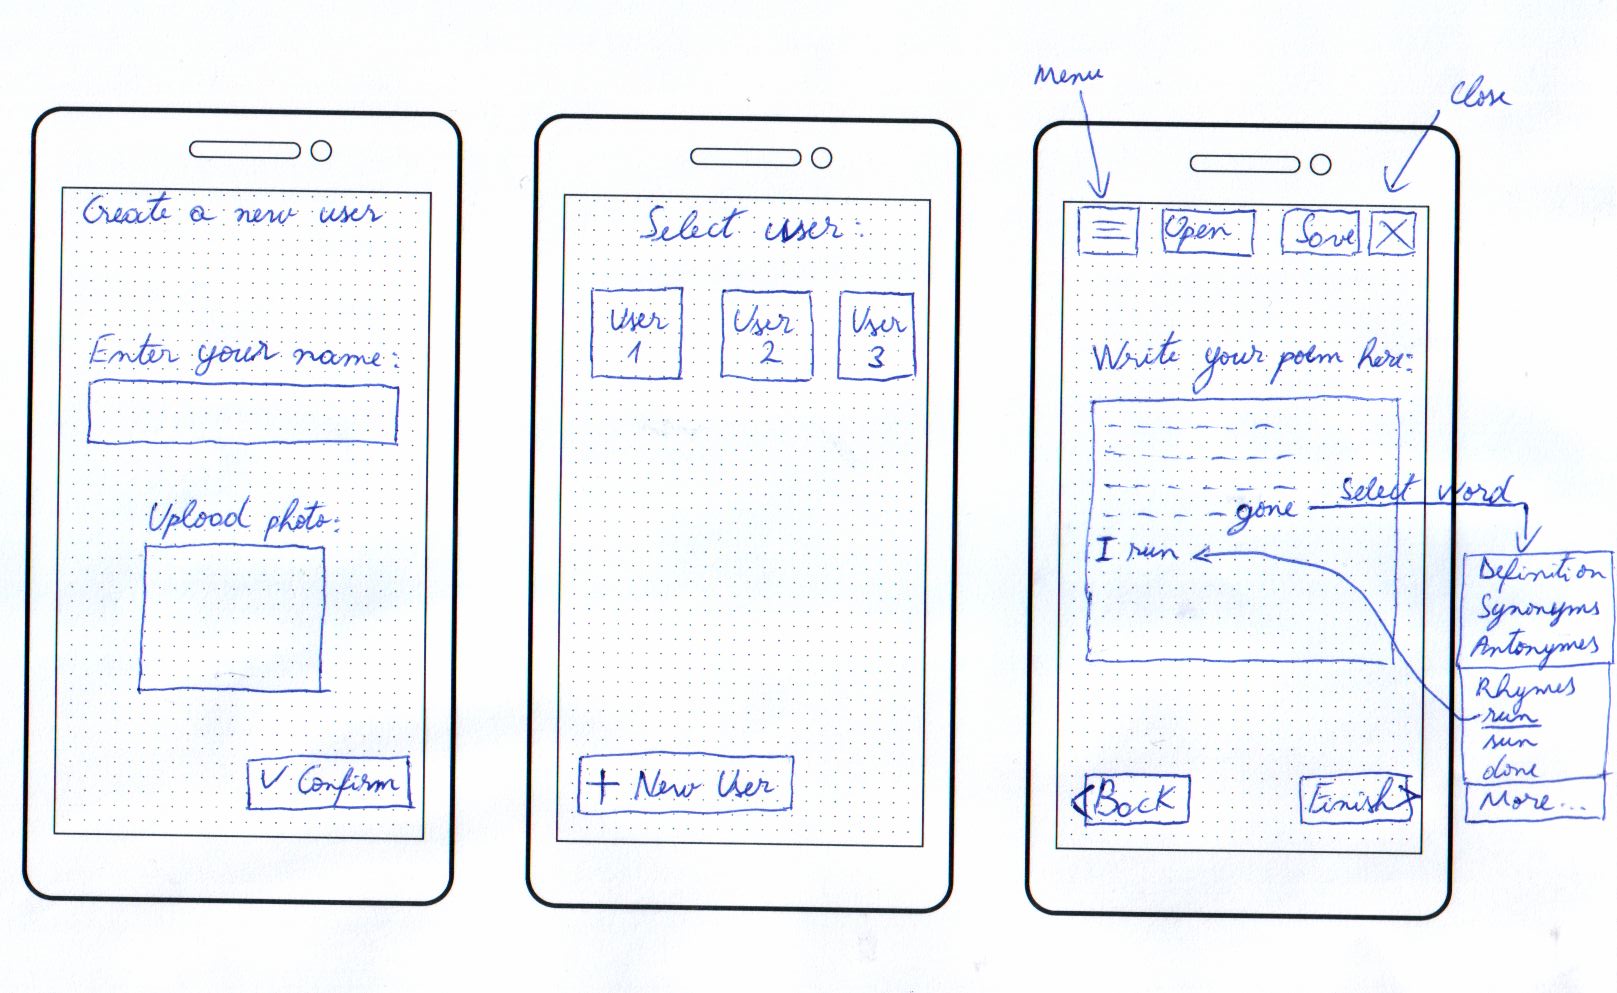 Create a new user
Enter your name:
Upload photo:
✓ Confirm
Select user:
User 1
User 2
User 3
+ New User
Menu
Close
Open
Save
X
Write your poem here:
gone
Select word
I run
Definition
Synonyms
Antonymes
Rhymes
run
sun
done
More...
< Back
Finish >